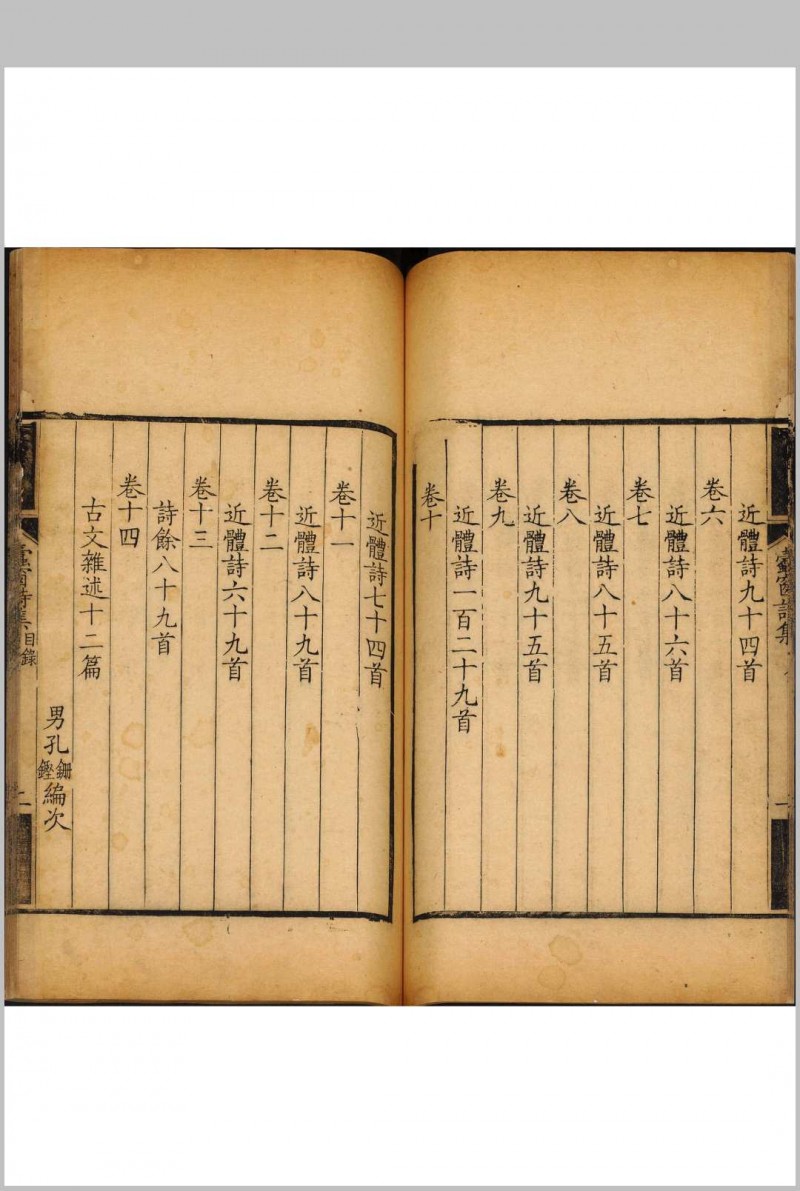 近體詩九十四首
卷六
近體詩八十六首
卷七
近體詩八十五首
卷八
近體詩九十五首
卷九
近體詩一百二十九首
卷十
近體詩七十四首
卷十一
近體詩八十九首
卷十二
近體詩六十九首
卷十三
詩餘八十九首
卷十四
古文雜述十二篇
男孔鈿鏗編次
詩集目錄
二